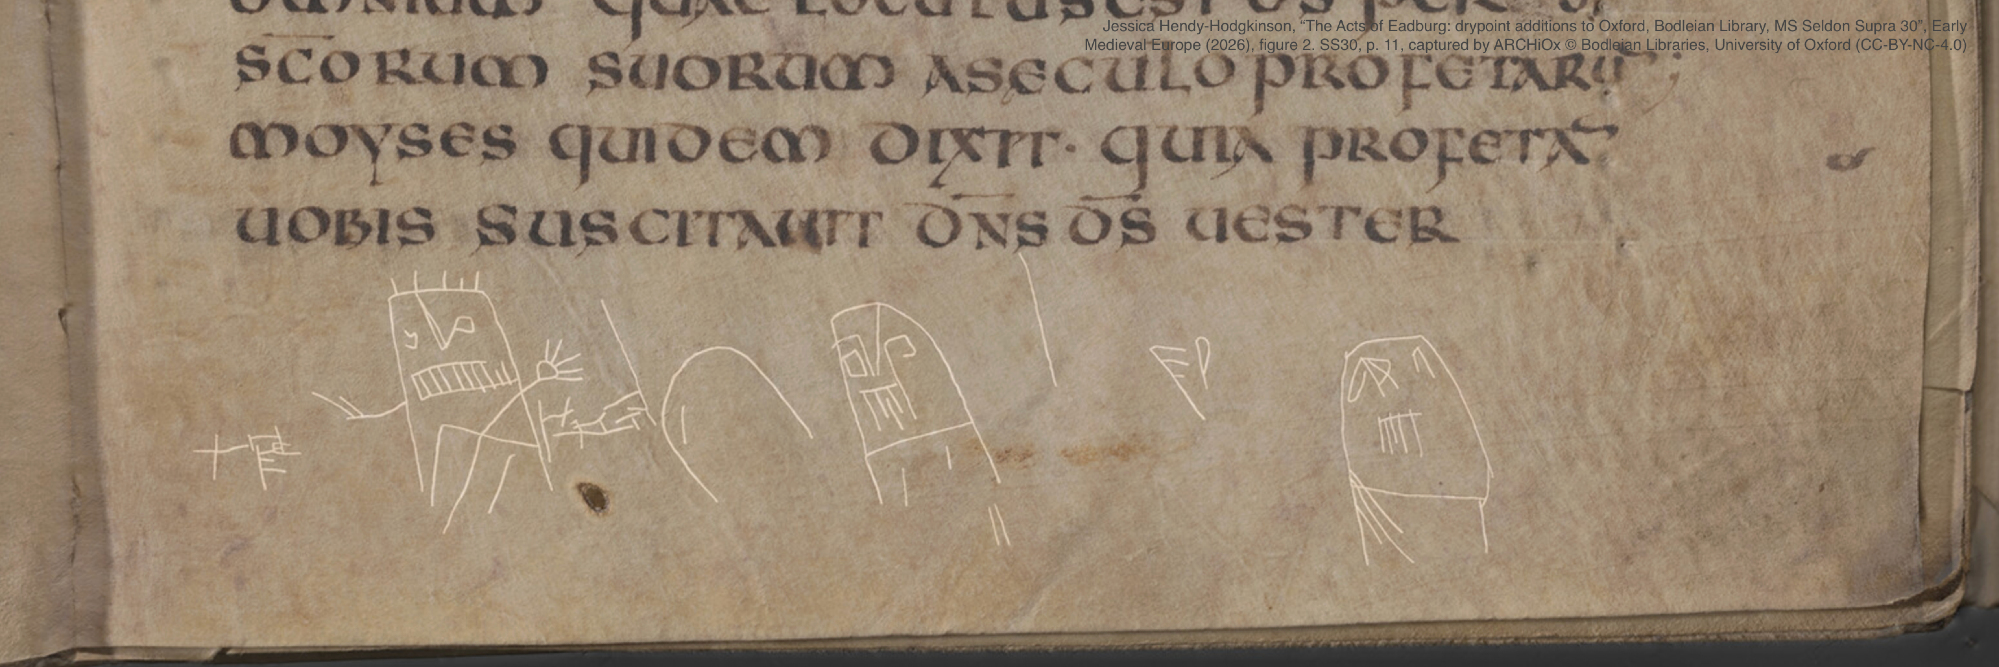 Jessica Hendy-Hodgkinson, “The Acts of Eadburg: drypoint additions to Oxford, Bodleian Library, MS Seldon Supra 30”, Early
Medieval Europe (2026), figure 2. SS30, p. 11, captured by ARCHiOx © Bodleian Libraries, University of Oxford (CC-BY-NC-4.0)
omnium quae locutus est d̄s per
s̄c̄orum suorum aseculo profetarū;
moyses quidem dixit· quia profetā
uobis suscitauit d̄n̄s d̄s uester